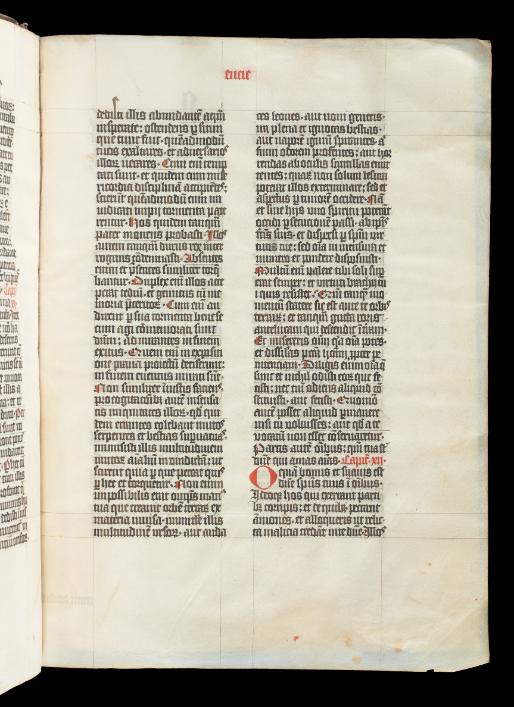 encie
dedisti illis abundantē aquā
insperate: ostendens p sitim
que tunc fuit, quēadmodū
tuos exaltares · et adversarios
illoꝝ necares · Cum eni tēp-
tati sunt · et quidem cum mise-
ricordia disciplinā accipiētes:
scierūt quēadmodū cum ira
iudicati impii tormenta pate-
rentur · Hos quidem tanqm̄
pater monens probasti · Illos
autem tanqm̄ durus rex inter-
rogans cōdemnasti · Absentes
enim et p̄sentes similiter torq̄-
bantur · Duplex eni illos acce-
perat tediū · et gemitus cū me-
moria p̄teritoꝝ · Cum eni au-
dirent p sua tormenta bene se-
cum agi cōmemorati sunt
dūm: admirantes in finem
exitus · Quem eni in expositi-
one praua proiectū deriserunt:
in finem euentus mirati sūt ·
Non similiter iustis sitiens ·
Pro cogitatōib; autē insensa-
tis iniquitates illoꝝ · qd qui-
dam errantes colebant mutos
serpentes et bestias supuacuas:
immisisti illis multitudinem
mutoꝝ aīaliū in vindictā: ut
scirent quia p que peccat quis
p hec et torquetur · Non enim
impossibilis erat omps man9
tua que creauit orbē terraꝝ ex
materia inuisa · immitte illis
multitudinē ursoꝝ · aut auda-
ces leones · aut noui generis ·
ira plena et ignotas bestias ·
aut vaporē igniū spirantes · a
fumi odorem p̄ferentes: aut hor-
rendas ab oculis scintillas emit-
tentes: quaꝝ non solum lesura
poterat illos exterminare: sed et
aspectus p timorē occidere · Nā
et sine hijs uno spiritu poterāt
occidi p̄secutionē passi · ab ip̄is
fc̄is suis · et dispersi p spm̄ vir-
tutis tue: sed oīa in mensura et
numero et pondere disposuisti ·
Multū eni valere tibi soli sup-
erat semper: et virtuti brachij tui
quis resistet · Qm̄ tanqm̄ mo-
mentū statere sic est ante te orbis
terraꝝ: et tanqm̄ gutta roris
antelucani que descendit ī terram ·
Et misereris oīm qa oīa potes ·
et dissimulas pctā hoīm ꝓpter pe-
nitenciam · Diligis eni oīa q̄
sunt et nichil odisti eoꝝ que fe-
cisti: nec eni odiens aliquid cō-
stituisti · aut fecisti · Quomō
autē posset aliquid ꝑmanere
nisi tu voluisses: aut qd a te
vocatū non esset cōseruaretur ·
Parcis autē oībus: qm̄ tua st̄
dn̄e qui amas aīas · Capitł · xij ·
O quā bonus et suauis est
dn̄e spūs tuus ī oībus ·
Ideoq; hos qui exerrant parti-
bus corripis: et de quib; peccant
amones · et alloqueris ut relic-
ta malicia credāt in te dn̄e · Illos